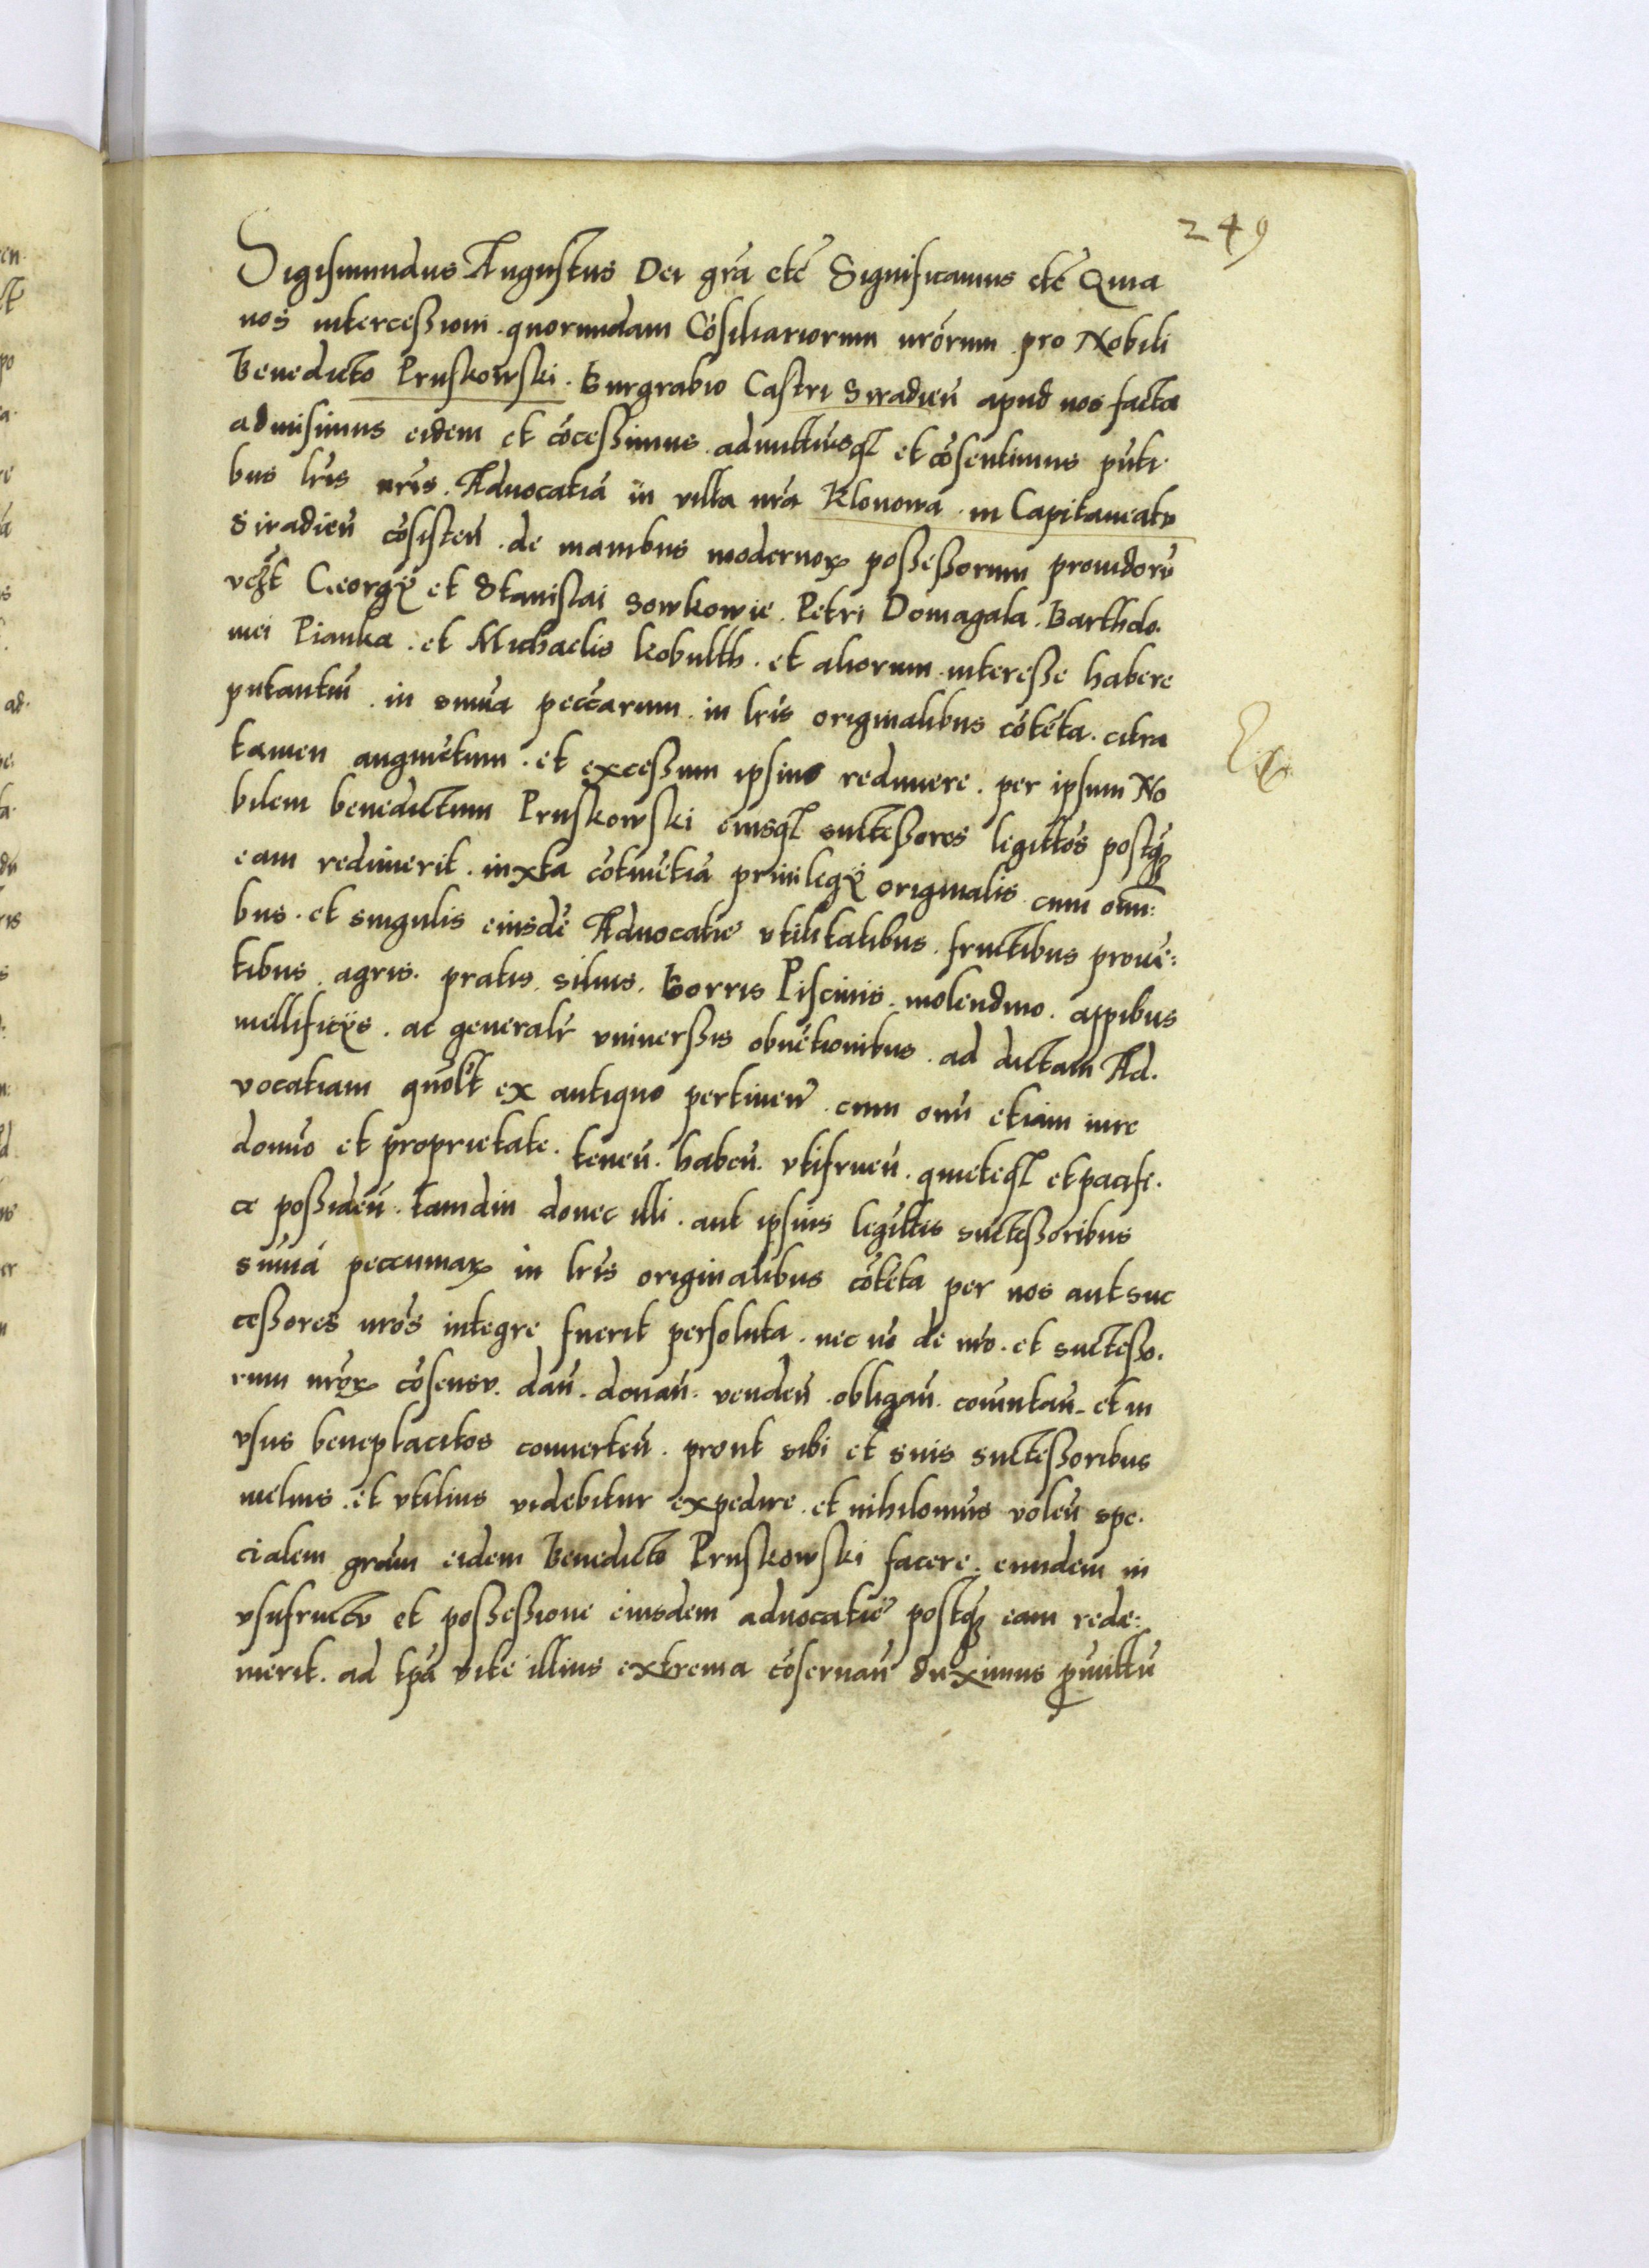 249
Sigismundus Augustus Dei gra etc Significamus etc Quia
nos intercessioni quorumdam Cosiliariorum nrorum pro Nobili
Benedicto Pruskowski. Burgrabio Castri Siradien apud nos facta
admisimus eidem et cocessimus admittimusq et cosentimus pnti
bus lris nris. Advocatia in villa nra Klonowa in Capitaneatu
Siradien cosisten. de manibus modernor possessorum providoru
vczt Georgij et Stanislai Sowkowie. Petri Domagala. Bartholo.
mei Pianka. et Michaelis kobulth. et aliorum interesse habere
putantiu in suma peccarum in lris originalibus coteta. citra
tamen augmetum. et excessum ipsius redimere. per ipsum No
bilem benedictum Pruskowski eiusq successores legittos postq
eam redimerit. iuxta cotinetia privilegij originalis cum omi:
bus. et singulis eiusde Advocatie utilitatibus fructibus prove:
tibus agris. pratis silvis, Borris Piscinis. molendino. appibus
mellificijs. ac generalr universsis obuetionibus. ad dictam Ad.
vocatiam quolt ex antiquo pertinen cum omi etiam iure
domio et proprietate. tenen. haben. utifruen. quieteq et pacifi.
ce possiden. tamdiu donec illi. aut ipsius legittis successoribus
suma peccumar in lris originalibus coteta per nos aut suc
cessores nros integre fuerit persoluta. nec no de nro. et successo.
rum nror cosensu. dan. donan. venden. obligan. comutan. et in
usus beneplacitos converten. prout sibi et suis successoribus
melius. et utilius videbitur expedire. et nihilomius volen spe.
cialem gram eidem Benedicto Pruskowski facere. eundem in
usufructu et possessione eiusdem advocatie postq eam rede:
merit. ad tpa vite illius extrema coservan duximus pmittu